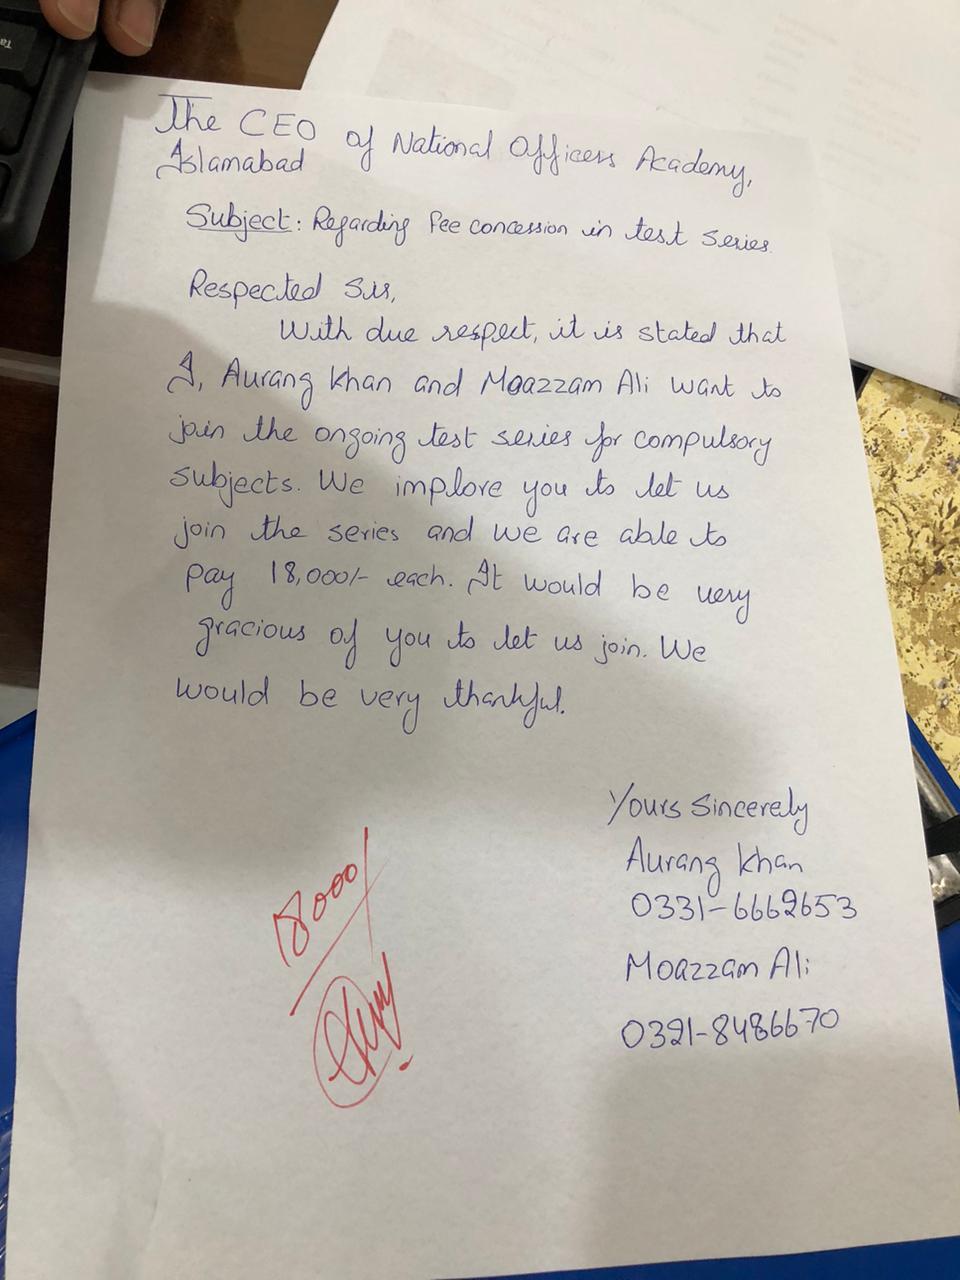 The CEO of National Officers Academy,
Islamabad
Subject: Regarding fee concession in test series.
Respected Sir,
With due respect, it is stated that
I, Aurang Khan and Moazzam Ali want to
join the ongoing test series for compulsory
subjects. We implore you to let us
join the series and we are able to
pay 18,000/- each. It would be very
gracious of you to let us join. We
would be very thankful.
Yours Sincerely
Aurang Khan
0331-6662653
Moazzam Ali
0321-8486670
18000/